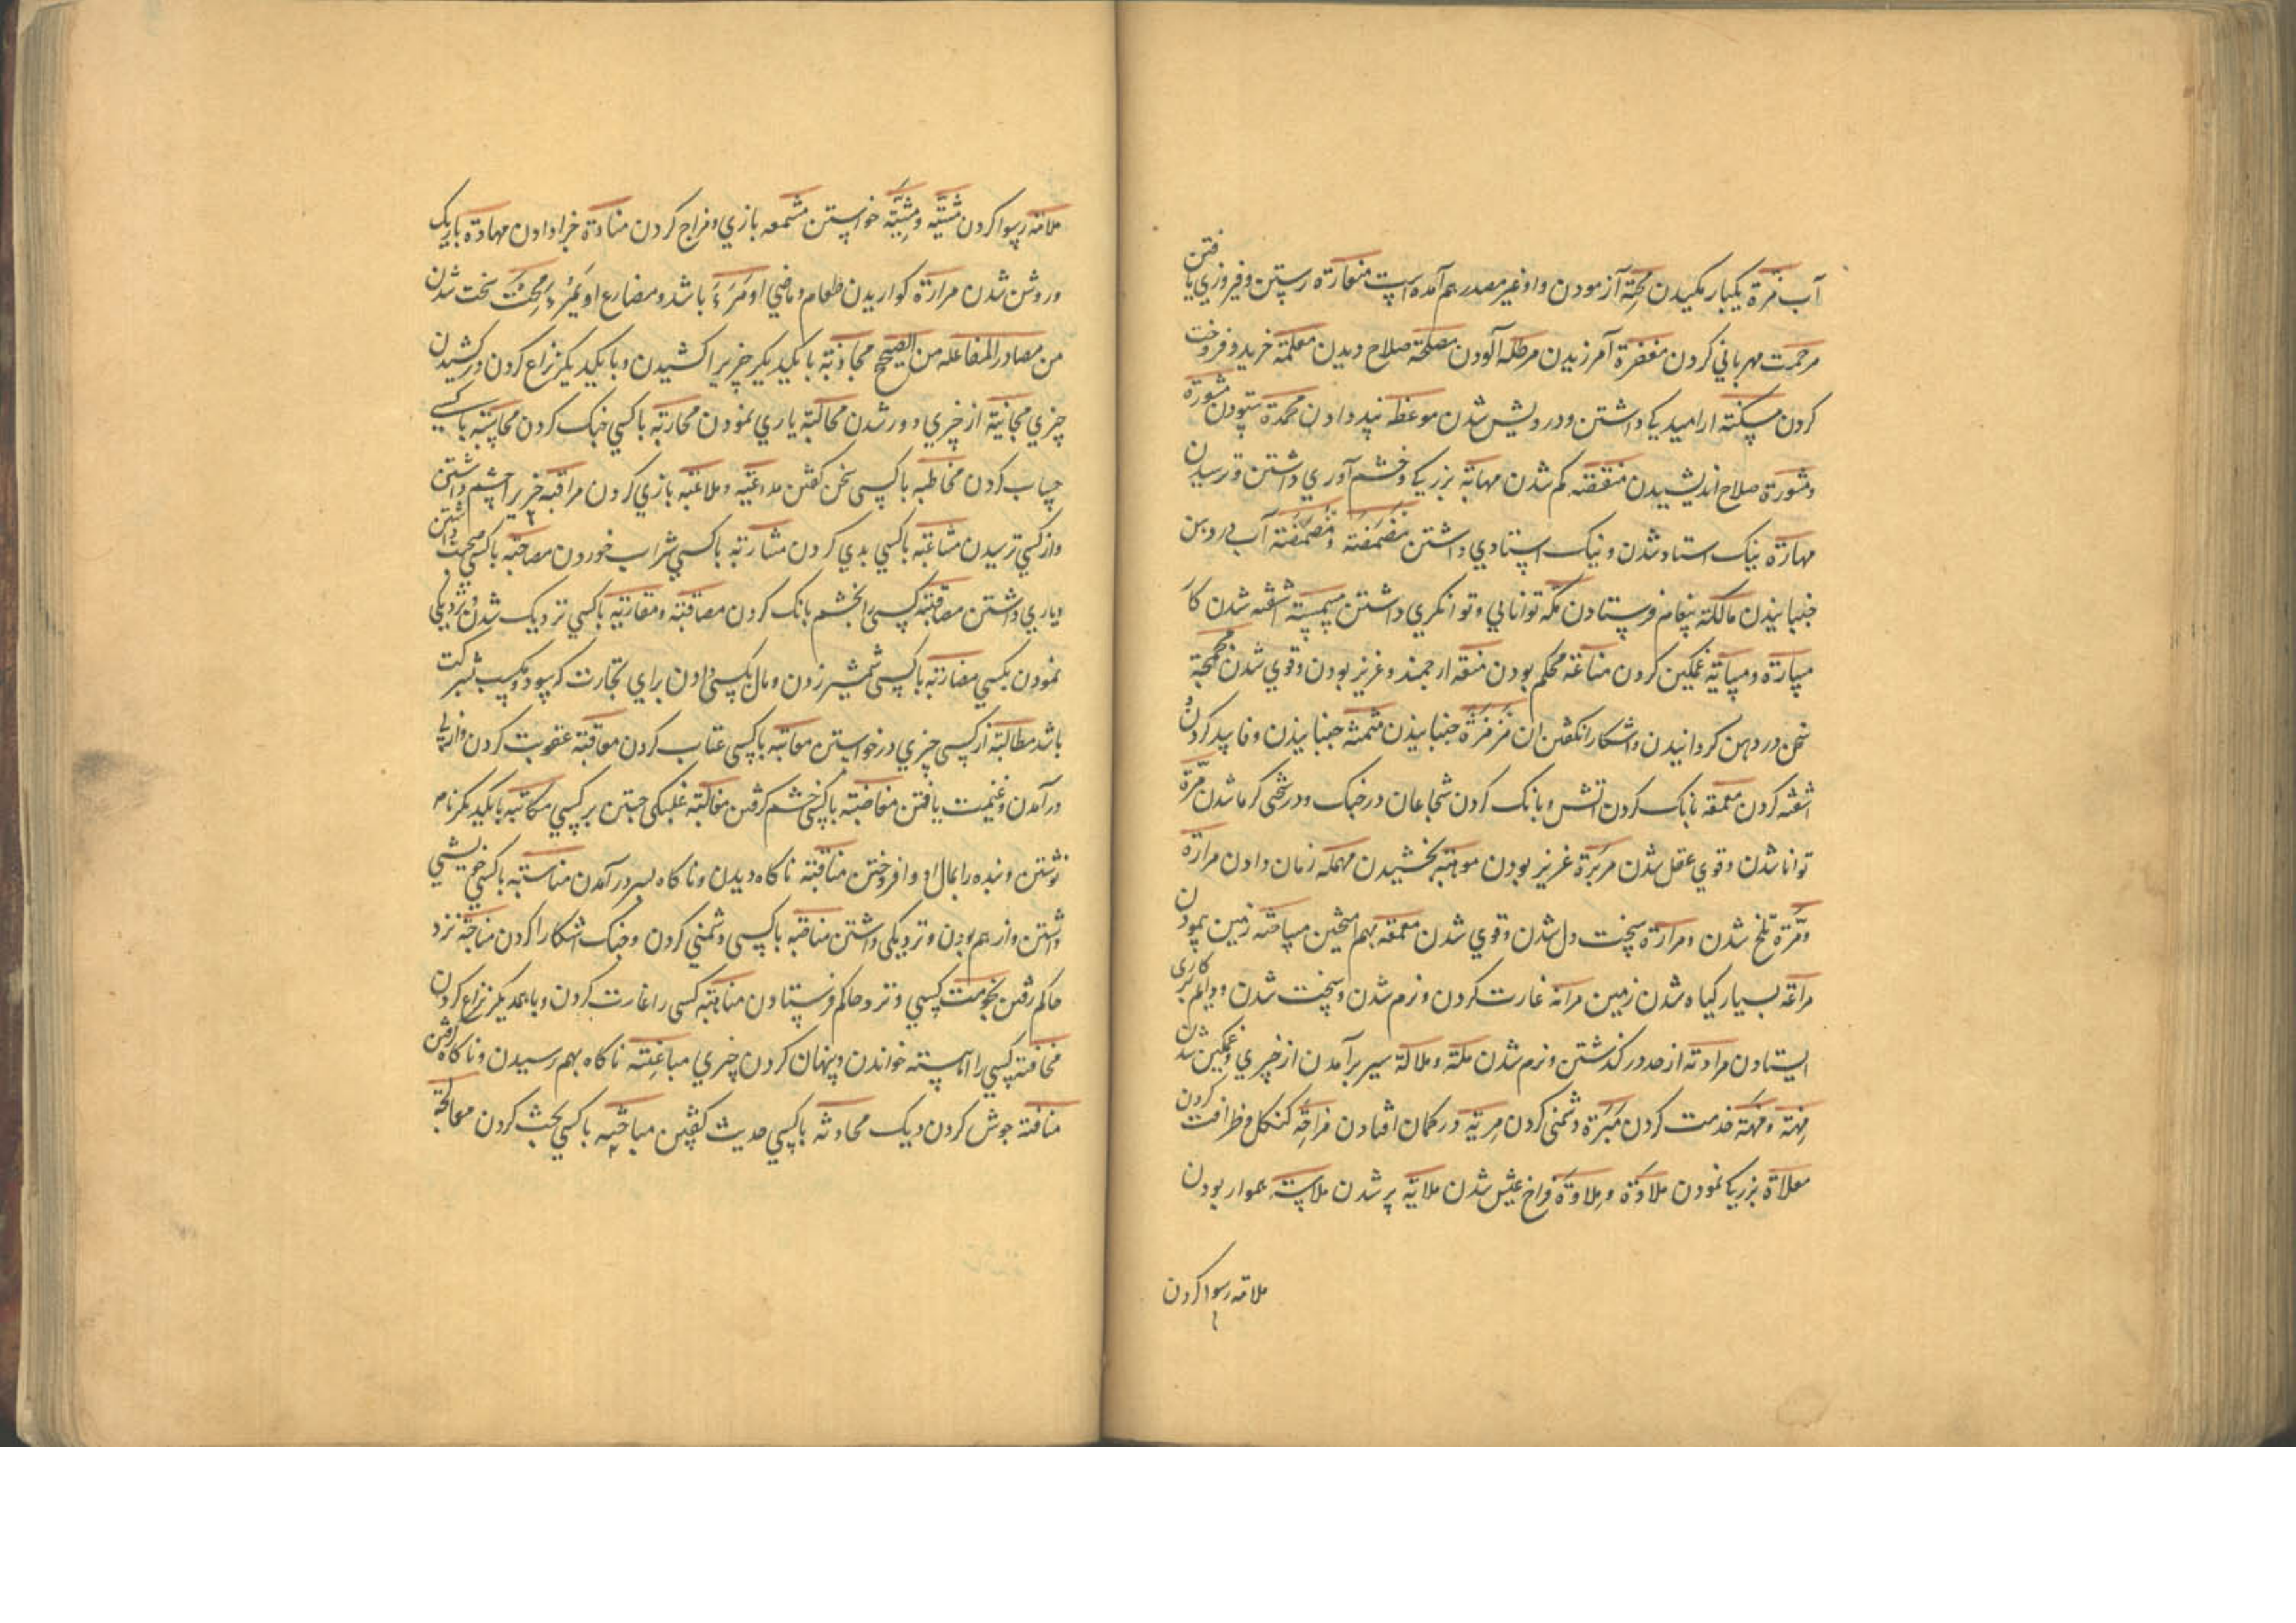 آب مزة یکبار مکیدن محنة آزمودن واو غیر مصدر هم آمده است مفازة رستن و فیروزي یافتن
مرحمت مهرباني کردن مغفرة آمرزیدن مرطله آلودن مصلحة صلاح دیدن معلمة خرید و فروخت
کردن مسکنة ارامیدیکي داشتن و درویش شدن موعظه پند دادن محمدة ستودن مشورة
و مشورة صلاح اندیشیدن منقصة کم شدن مهابة بزرکي و خشم آوري داشتن و ترسیدن
مهارة نیک استاد شدن و نیک استادي داشتن مضمضة و مصمصة آب در دهن
جنبانیدن مالکة پیغام فرستادن مکنة توانایي و توانکري داشتن اشفته شدن کار
مساءة و مسایة غمکین کردن مناعة محکم بودن منعة ارجمند و عزیز بودن و قوي شدن مجمجة
سخن در دهن کردانیدن و اشکارا نکفتن ان مزمزة جنبانیدن مثمثة جنبانیدن و فاسد کردن و
اشفته کردن معمعه بانک کردن اتش و بانک کردن شجاعان در جنک و در سختي کرما شدن مرة
توانا شدن و قوي عقل شدن مزیة عزیز بودن موهبة بخشیدن مهملة زمان دادن مرارة
و مرة تلخ شدن و مرارة سخت دل شدن و قوي شدن معمعة بهم امیختن مساحة زمین پیمودن
مراعة بسیار کیاه شدن زمین مرانة غارت کردن و نرم شدن و سخت شدن و دایم بر کاري
ایستادن مرادة از حد در کذشتن و نرم شدن ملة و ملالة سیر برآمدن از چیزي و غمکین شدن
مهنة و مهنة خدمت کردن مئرة دشمني کردن مریة در کمان افتادن مزاحة کنکل و ظرافت کردن
معلاة بزرکي نمودن ملاوة و ملاوة فراخ عیش شدن ملایة پر شدن ملاسة هموار بودن
ملامة رسوا کردن
ملامة رسوا کردن مشیة و مشیة خواستن مشمعه بازي و مزاح کردن مناداة خبر دادن مهادة باریک
و روشن شدن مرارة کواریدن طعام و ماضي او مرء باشد و مضارع او یمرء سخت شدن
من مصادر المفاعلة من الصحیح مجاذبة با یکدیکر چیزیرا کشیدن و با یکدیکر نزاع کردن در کشیدن
چیزي مجانبة از چیزي دور شدن محالبة یاري نمودن محاربة با کسي جنک کردن محاسبة با کسي
حساب کردن مخاطبة با کسي سخن کفتن مداعبة و ملاعبة بازي کردن مراقبة چیزیرا چشم داشتن
و از کسي ترسیدن مشاغبة با کسي بدي کردن مشاربة با کسي شراب خوردن مصاحبة با کسي صحبت داشتن
و یاري داشتن کسي را بخشم بانک کردن مصاقبة و مقاربة با کسي نزدیک شدن و نزدیکي
نمودن بکسي مضاربة با کسي شمشیر زدن و مال بکسي دادن براي تجارت که سود و کسب شرکت
باشد مطالبة از کسي چیزي درخواستن معاتبة با کسي عتاب کردن معاقبة عقوبت کردن و از پي
درآمدن و غنیمت یافتن مغاضبة با کسي خشم کرفتن مغالبة غلبکي جستن بر کسي مکاتبة با یکدیکر نامه
نوشتن و بنده را بمال او وافروختن مناقبة ناکاه دیدن و ناکاه بسر درآمدن مناسبة با کسي خویشي
داشتن و از هم بودن و نزدیکي داشتن مناصبة با کسي دشمني کردن و جنک اشکارا کردن نزد
حاکم رفتن بخصومت کسي و نزد حاکم فرستادن مناهبة کسي را غارت کردن و با همدیکر نزاع کردن
مخافتة کسي را اهسته خواندن و پنهان کردن چیزي مباغتة ناکاه بهم رسیدن و ناکاه کرفتن
منافتة جوش کردن دیک محادثة با کسي حدیث کفتن مباحثة با کسي بحث کردن معالجة